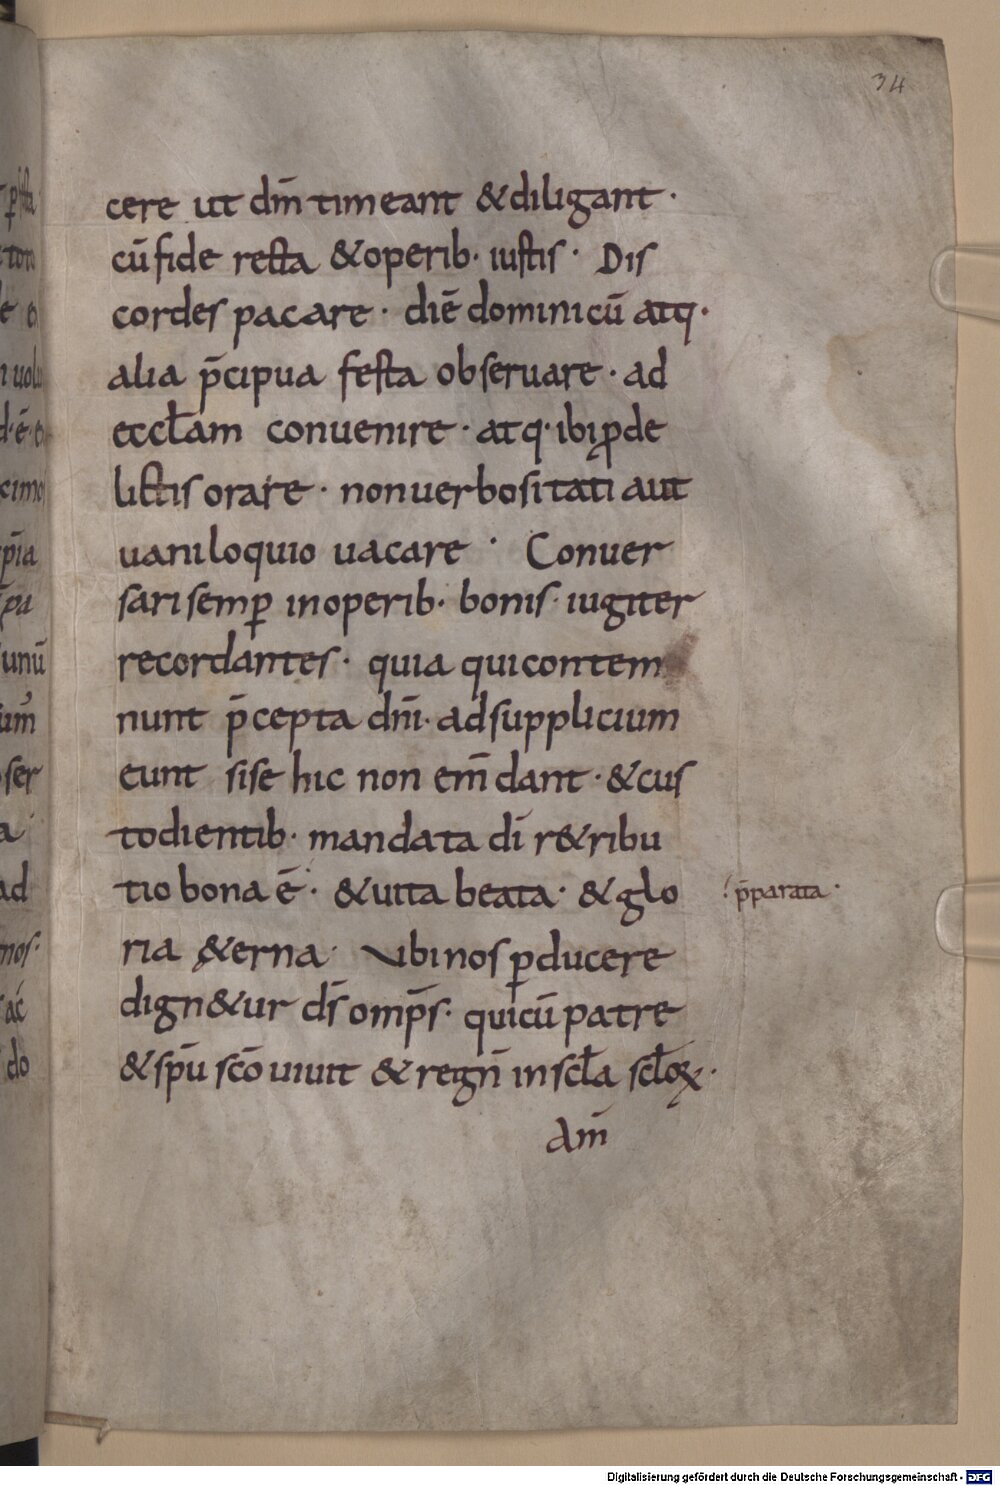 34
cere ut dm̄ timeant & diligant ·
cū fide recta & operib· iustis · Dis
cordes pacare · diē dominicū atq·
alia p̄cipua festa obseruare · ad
eccłam conuenire · atq· ibi ꝓ de
lictis orare · non uerbositati aut
uaniloquio uacare · Conuer
sari semꝑ in operib· bonis · iugiter
recordantes · quia qui contem
nunt p̄cepta dn̄i · ad supplicium
eunt si se hic non em̄dant · & cus
todientib· mandata dī r&ribu
tio bona ē · & uita beata · & glo
p̄parata ·
ria &erna · Ubi nos ꝑducere
dign&ur ds̄ omp̄s · qui cū patre
& spū scō uiuit & regn̄ in scła scłoꝝ ·
Am̄
Digitalisierung gefördert durch die Deutsche Forschungsgemeinschaft - DFG